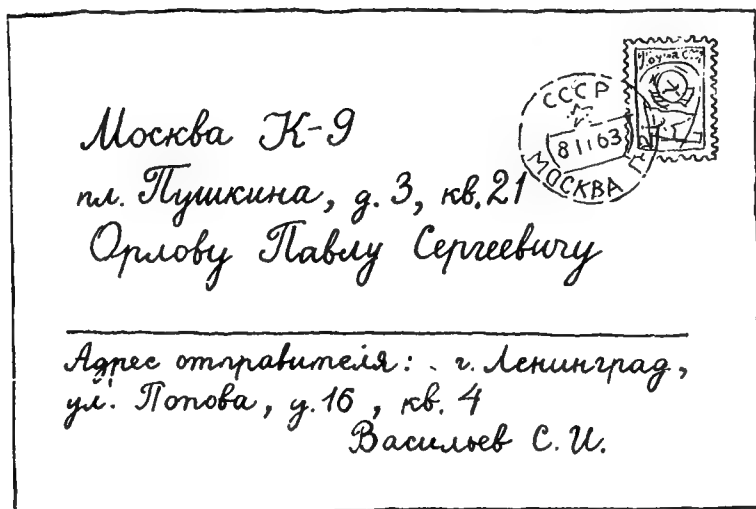 СССР
8 II 63
МОСКВА
Москва К-9
пл. Пушкина, д. 3, кв. 21
Орлову Павлу Сергеевичу
Адрес отправителя: г. Ленинград,
ул. Попова, д. 16, кв. 4
Васильев С. И.